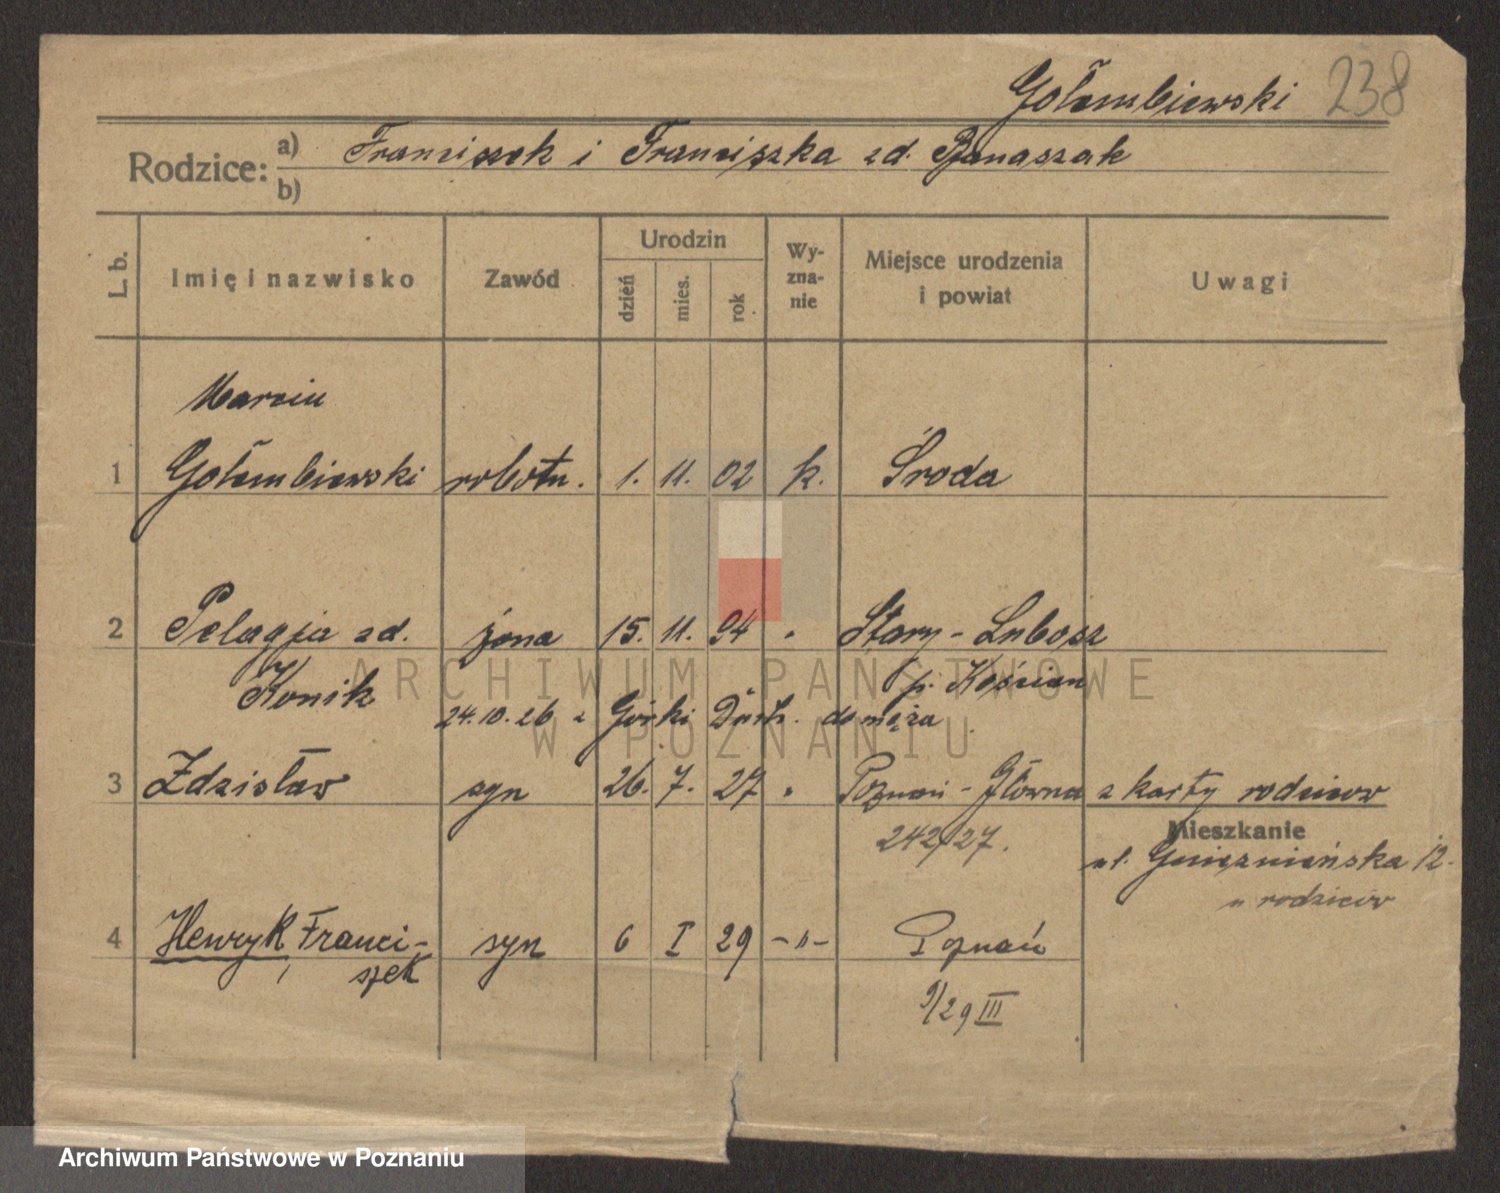 Gołembiewski 238
Rodzice: a) Franciszek i Franciszka zd. Banaszak
b)
L. b. Imię i nazwisko Zawód Urodzin dzień mies. rok Wyznanie Miejsce urodzenia i powiat Uwagi
Marcin
1 Gołembiewski robotn. 1. 11. 02 k. Środa
2 Pelagja zd. żona 15. 11. 94 " Stary-Lubosz
Konik p. Kościan
24.10.26 z Górki Duch. do męża
3 Zdzisław syn 26. 7. 27 " Poznań-Główna z karty rodziców
242/27. Mieszkanie
ul. Gnieźnieńska 12.
u rodziców
4 Henryk, Franci- syn 6 I 29 -"- Poznań
szek
9/29 III
ARCHIWUM PAŃSTWOWE
W POZNANIU
Archiwum Państwowe w Poznaniu